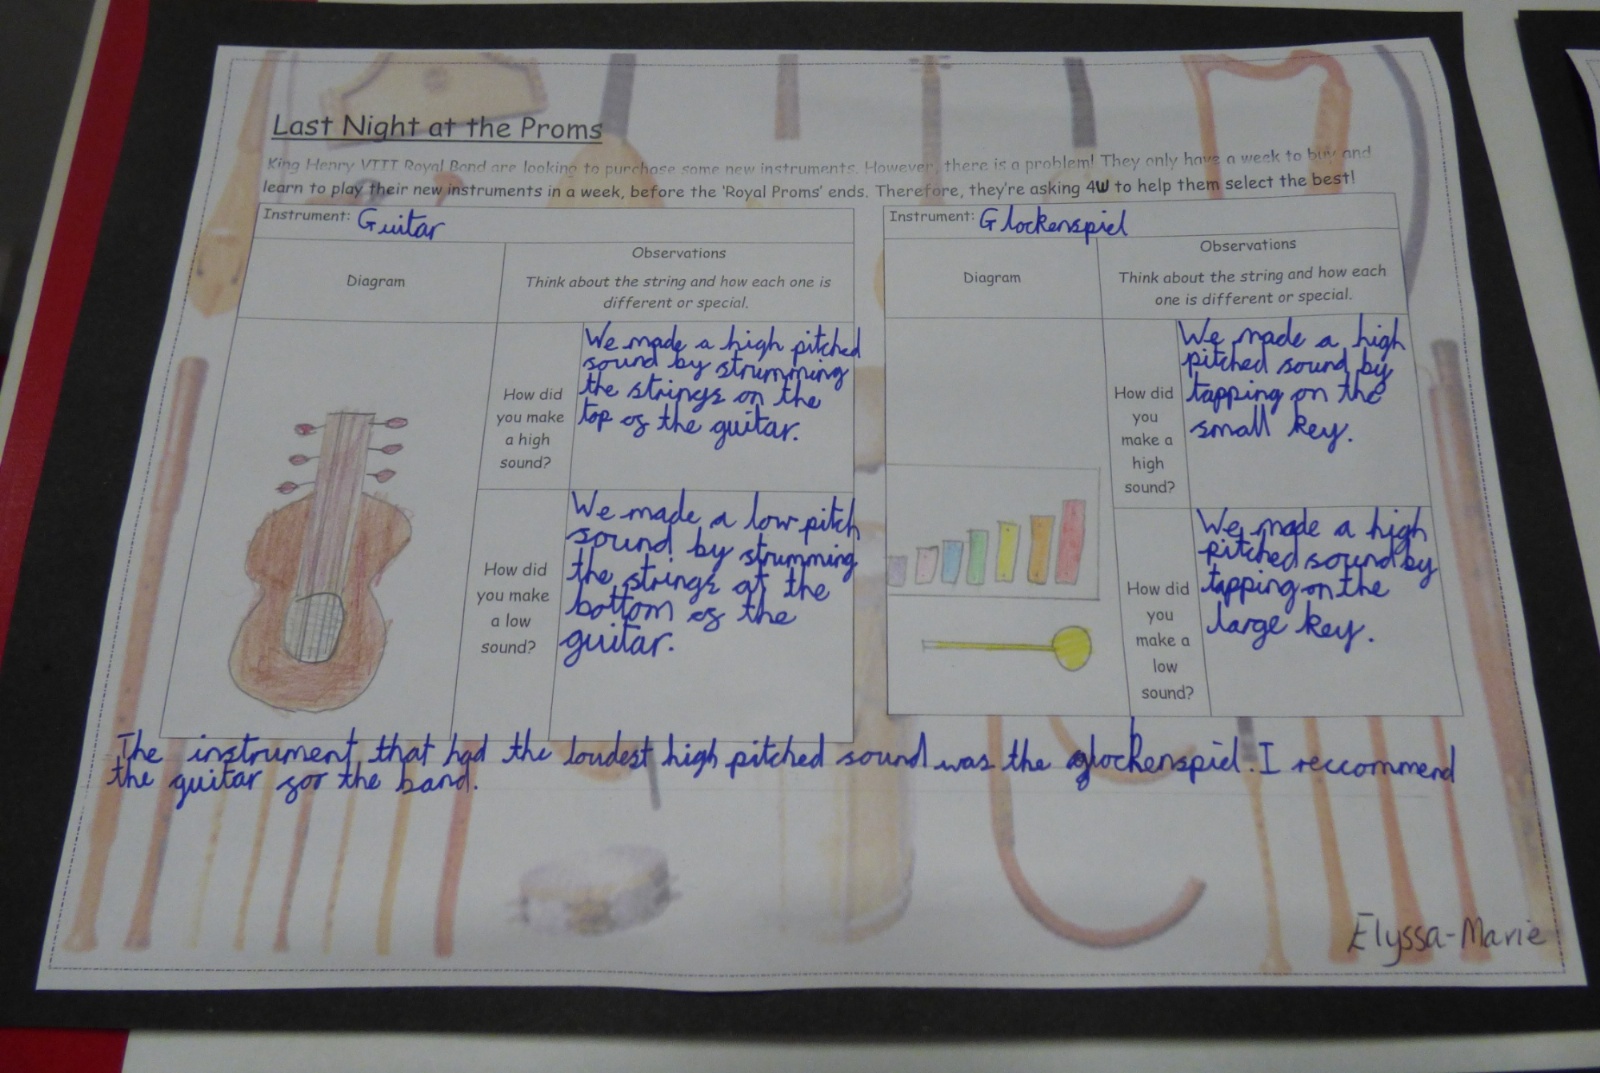 Last Night at the Proms
King Henry VIII Royal Band are looking to purchase some new instruments. However, there is a problem! They only have a week to buy and
learn to play their new instruments in a week, before the 'Royal Proms' ends. Therefore, they're asking 4W to help them select the best!
Instrument: Guitar
Diagram
Observations
Think about the string and how each one is
different or special.
How did
you make
a high
sound?
We made a high pitched
sound by strumming
the strings on the
top of the guitar.
How did
you make
a low
sound?
We made a low pitch
sound by strumming
the strings at the
bottom of the
guitar.
Instrument: Glockenspiel
Diagram
Observations
Think about the string and how each
one is different or special.
How did
you
make a
high
sound?
We made a high
pitched sound by
tapping on the
small key.
How did
you
make a
low
sound?
We made a high
pitched sound by
tapping on the
large key.
The instrument that had the loudest high pitched sound was the glockenspiel. I reccommend
the guitar for the band.
Elyssa-Marie